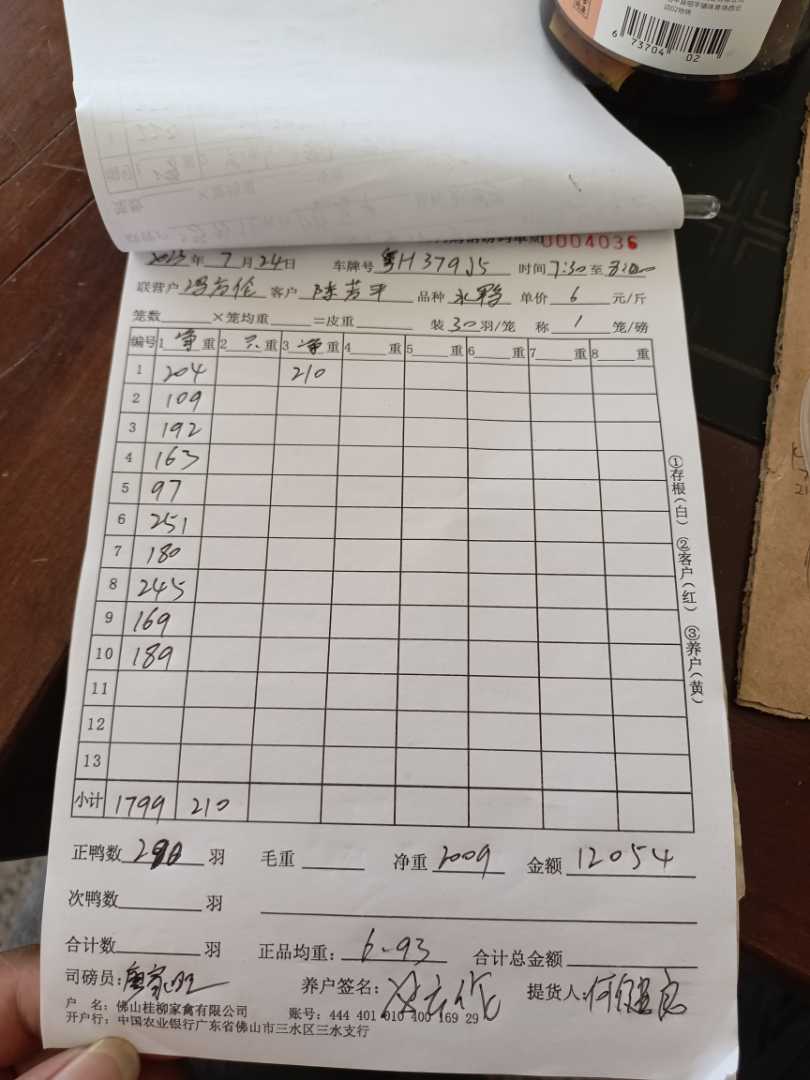 6 73704 02
0004036
2023年 7月24日 车牌号 粤H379J5 时间 7:30至8:00
联营户 客户 陈芳平 品种 水鸭 单价 6 元/斤
笼数 ×笼均重 =皮重 装30羽/笼 称 1 笼/磅
编号 1 净重 2 重 3 净重 4 重 5 重 6 重 7 重 8 重
1 204 210
2 109
3 192
4 163
5 97
6 251
7 180
8 245
9 169
10 189
11
12
13
小计 1799 210
正鸭数 290 羽 毛重 净重 2009 金额 12054
次鸭数 羽
合计数 羽 正品均重: 6-93 合计总金额
司磅员: 养户签名: 提货人:
户 名: 佛山桂柳家禽有限公司 账号: 444 401 010 400 169 29
开户行: 中国农业银行广东省佛山市三水区三水支行
①存根(白) ②客户(红) ③养户(黄)